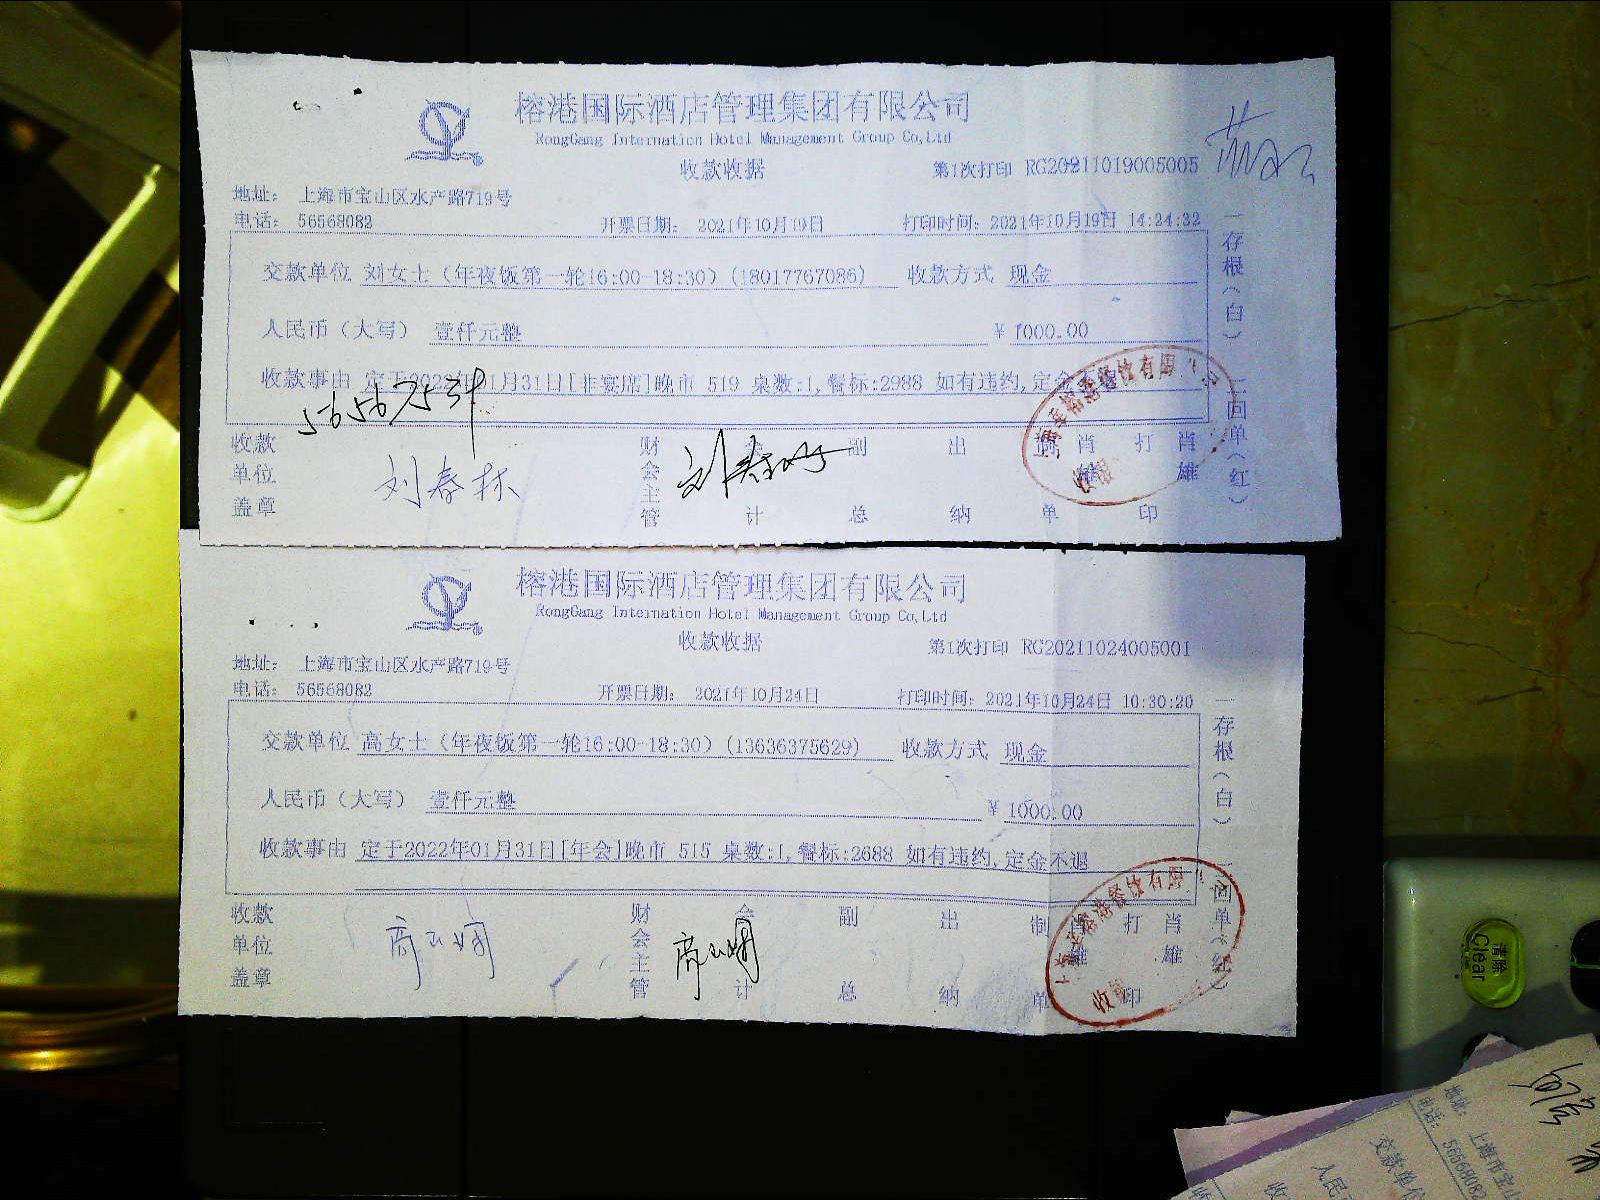 榕港国际酒店管理集团有限公司
RongGang Internation Hotel Management Group Co,Ltd
收款收据
第1次打印 RG20211019005005
地址： 上海市宝山区水产路719号
电话： 56568082 开票日期： 2021年10月19日 打印时间：2021年10月19日 14:24:32
交款单位 刘女士（年夜饭第一轮16:00-18:30）(18017767086) 收款方式 现金
人民币（大写） 壹仟元整 ￥ 1000.00
收款事由 定于2022年01月31日[非宴席]晚市 519 桌数:1,餐标:2988 如有违约,定金不
56567539
收款单位盖章 刘春林 财会主管 会计 副总 出纳 制单 肖雄 打印 肖雄
一存根（白）
二回单（红）
榕港餐饮有限
榕港国际酒店管理集团有限公司
RongGang Internation Hotel Management Group Co,Ltd
收款收据
第1次打印 RG20211024005001
地址： 上海市宝山区水产路719号
电话： 56568082 开票日期： 2021年10月24日 打印时间：2021年10月24日 10:30:20
交款单位 高女士（年夜饭第一轮16:00-18:30）(13636375629) 收款方式 现金
人民币（大写） 壹仟元整 ￥ 1000.00
收款事由 定于2022年01月31日[年会]晚市 515 桌数:1,餐标:2688 如有违约,定金不退
收款单位盖章 财会主管 会计 副总 出纳 制单 肖雄 打印 肖雄
一存根（白）
二回单（红）
港餐饮有限
清除
Clear
地址： 上海市宝
电话： 56568082
交款单位
人民
收